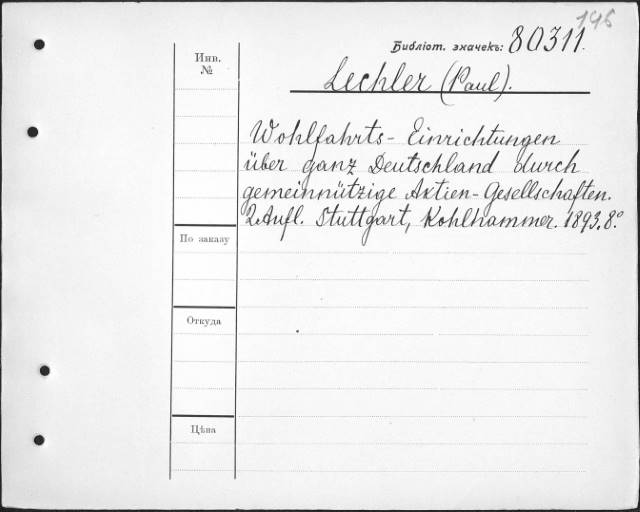 195
Библіот. значекъ: 80311.
Инв.
№
Lechler (Paul).
Wohlfahrts-Einrichtungen
über ganz Deutschland durch
gemeinnützige Aktien-Gesellschaften.
2 Aufl. Stuttgart, Kohlhammer. 1893. 8.º
По заказу
Откуда
Цѣна